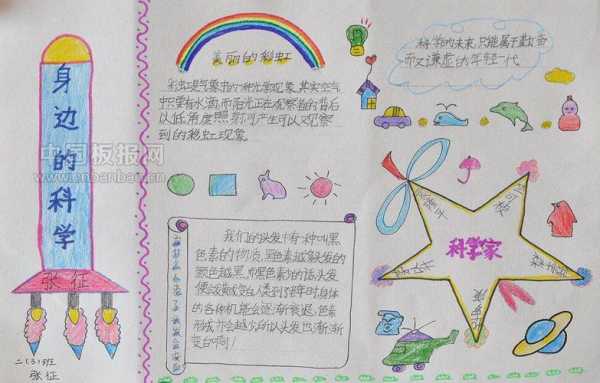 身边的科学
张征
二(3)班
张征
中国板报网
www.cnbanbao.cn
美丽的彩虹
彩虹是气象中的一种光学现象,其实空气
中只要有水滴,而阳光正在观察者的背后
以低角度照射,便可产生可以观察
到的彩虹现象
科学的未来,只能属于勤奋
而又谦虚的年轻一代
我们的头发中有一种叫黑
色素的物质,黑色素越多头发的
颜色越黑,
人类到了老年时,身体
的各种机能会逐渐衰退,色素
形成亦会越少,所以头发也渐渐
变白啊!
科学家